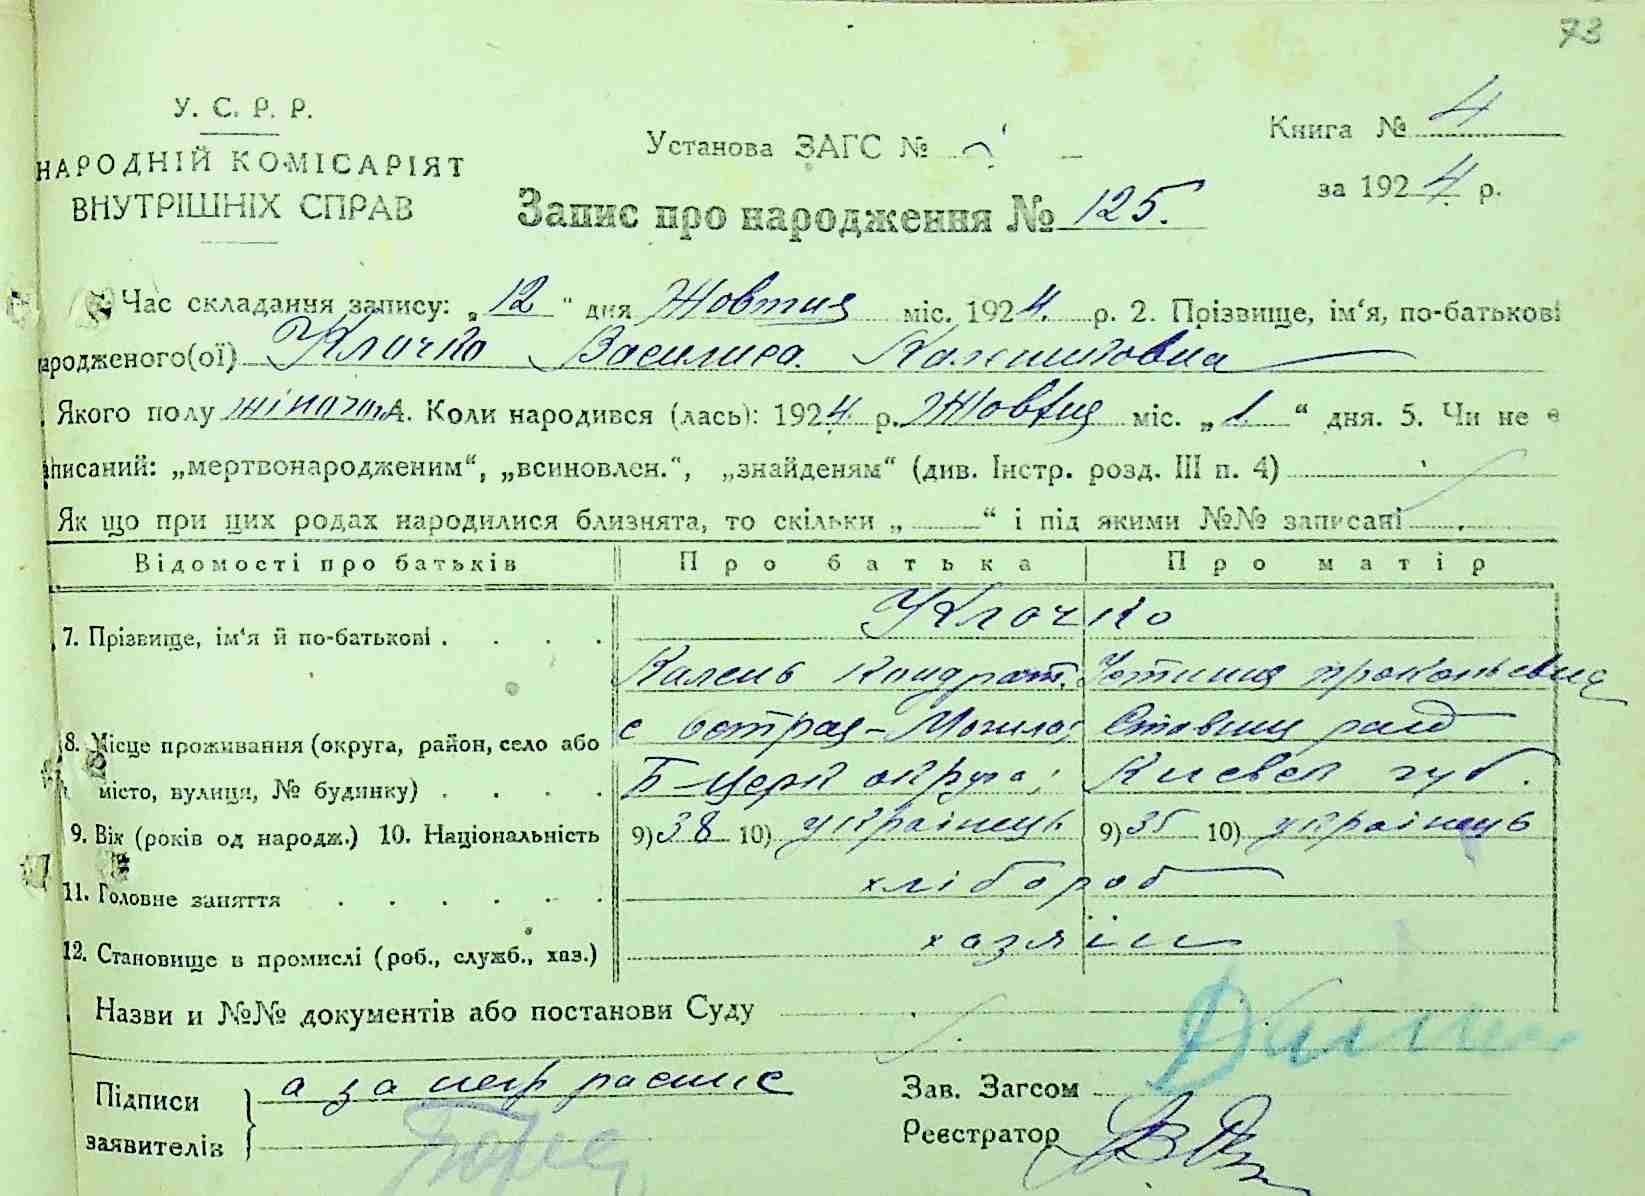 73
У. С. Р. Р.
НАРОДНІЙ КОМІСАРІЯТ
ВНУТРІШНІХ СПРАВ
Установа ЗАГС №
Книга № 4
за 1924 р.
Запис про народження № 125.
Час складання запису: „12" дня Жовтня міс. 1924. р. 2. Прізвище, ім'я, по-батькові
народженого(ої) Клочко Василиса
Якого полу жіночого 4. Коли народився (лась): 1924 р. Жовтня міс. „1" дня. 5. Чи не є
записаний: „мертвонародженим", „всиновлен.", „знайденям" (див. Інстр. розд. III п. 4)
Як що при цих родах народилися близнята, то скільки „ " і під якими №№ записані
Відомості про батьків Про батька Про матір
7. Прізвище, ім'я й по-батькові . . . . Клочко
Кондрат. Устиния прокопьевна
8. Місце проживання (округа, район, село або с Острая-Могила; Ставищ
місто, вулиця, № будинку) . . . . Б-церк округа; Киевск губ.
9. Вік (років од народж.) 10. Національність 9) 38 10) українець 9) 35 10) українець
11. Головне заняття . . . . . . хлібороб
12. Становище в промислі (роб., служб., хаз.) хазяїн
Назви и №№ документів або постанови Суду
Підписи а за
заявителів
Зав. Загсом
Реєстратор